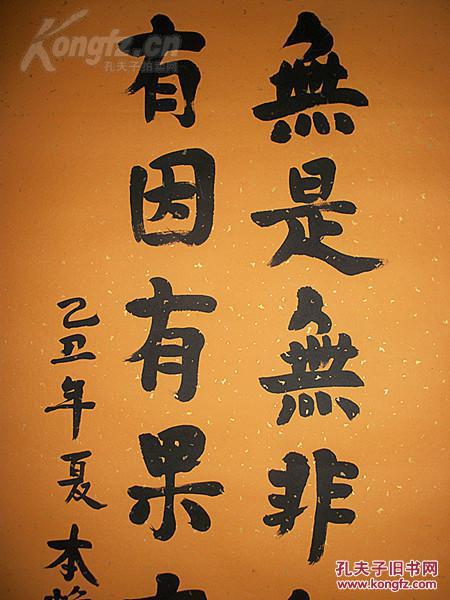 無是無非
有因有果
乙丑年夏本
Kongfz.cn
孔夫子旧书网
孔夫子旧书网
www.kongfz.com